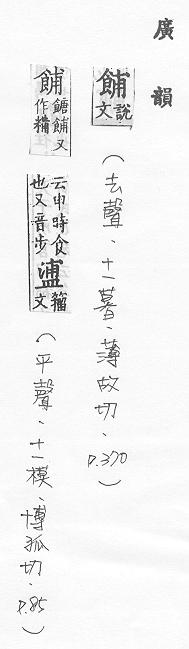 廣韻
餔 說文
（去聲、十一暮、薄故切、P.370）
餔 餹餔又作
云申時食也又音步 籀文
（平聲、十一模、博孤切、P.85）